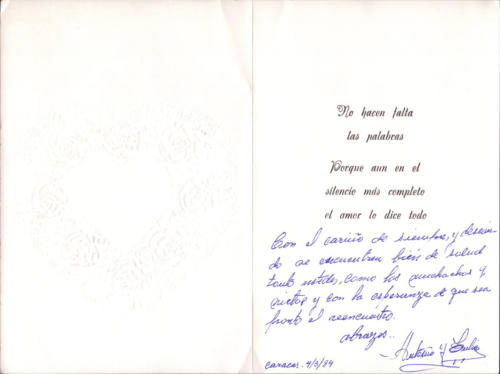 No hacen falta
las palabras
Porque aun en el
silencio más completo
el amor lo dice todo
Con el cariño de siempre, y desean-
do se encuentren bién de salud
tanto ustedes, como los muchachos y
nietos y con la esperanza de que sea
pronto el reencuentro.
abrazos..
Antonio y
Caracas. 4/3/84